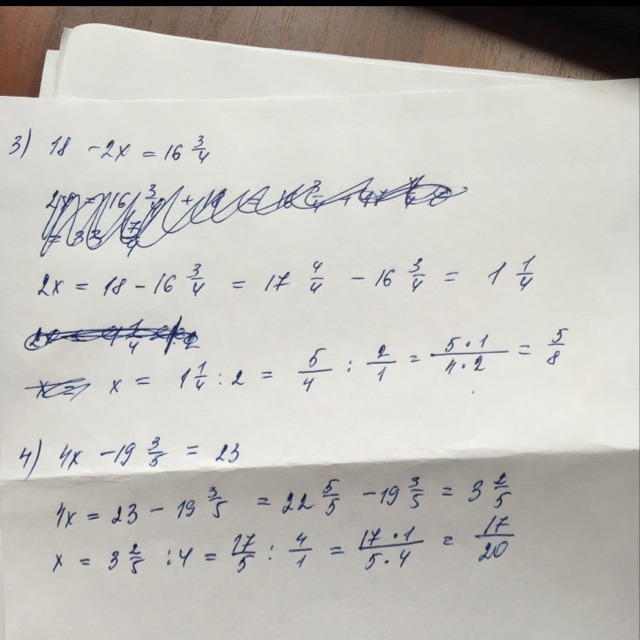 3) 18 - 2x = 16 3/4
2x = 18 - 16 3/4 = 17 4/4 - 16 3/4 = 1 1/4
x = 1 1/4 : 2 = 5/4 : 2/1 = 5·1/4·2 = 5/8
4) 4x - 19 3/5 = 23
4x = 23 - 19 3/5 = 22 5/5 - 19 3/5 = 3 2/5
x = 3 2/5 : 4 = 17/5 : 4/1 = 17·1/5·4 = 17/20